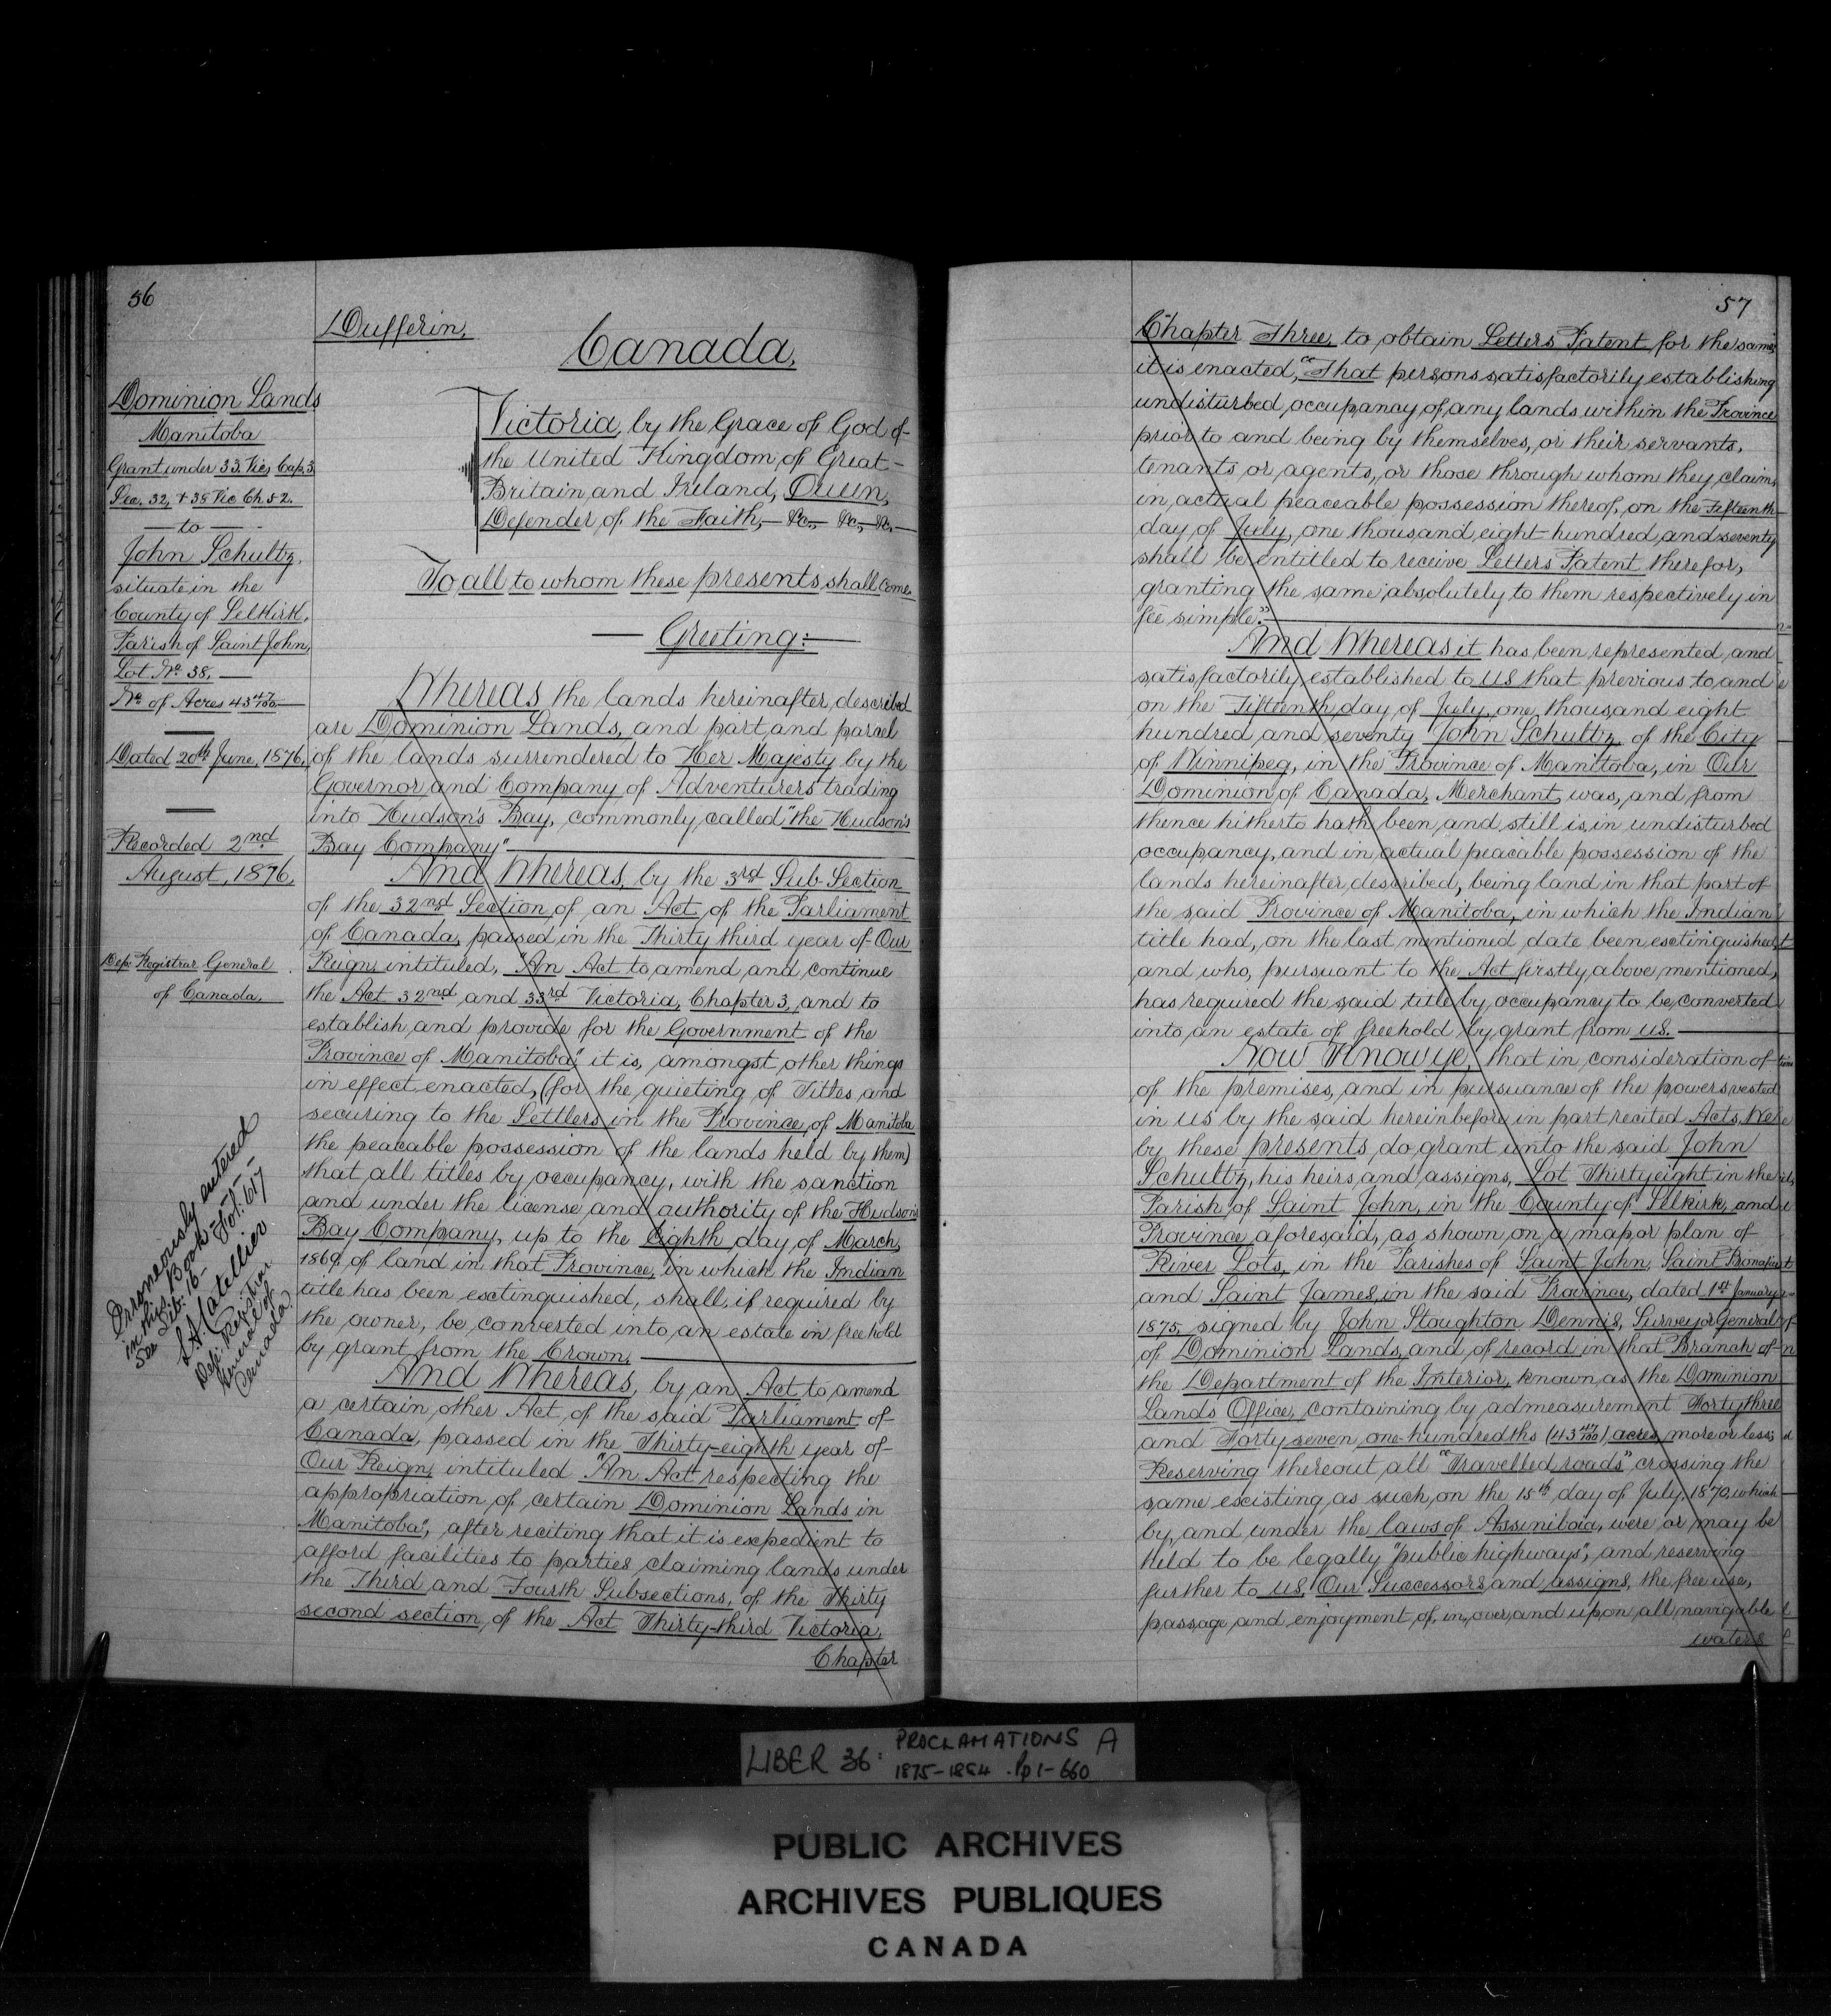 56
Dufferin.
Canada.
Dominion Lands
Manitoba
Grant under 33. Vic, Cap. 3.
Sec. 32, + 38 Vic Ch. 52.
— to —
John Schultz,
situate in the
County of Selkirk,
Parish of Saint John,
Lot No. 38. —
No. of Acres 43 47/100 —
Dated 20th June, 1876.
Recorded 2nd
August, 1876.
Dep: Registrar General
of Canada.
Erroneously entered
in this Book —
See Lib: 16 — Fol: 617
Dep: Registrar
General of
Canada
Victoria, by the Grace of God of
the United Kingdom of Great
Britain and Ireland, Queen,
Defender of the Faith, — &c., — &c., &c. —
To all to whom these presents shall come
— Greeting: —
Whereas the lands hereinafter described
are Dominion Lands, and part and parcel
of the lands surrendered to Her Majesty by the
Governor and Company of Adventurers trading
into Hudson's Bay, commonly called "the Hudson's
Bay Company" —
And Whereas, by the 3rd Sub-Section
of the 32nd Section of an Act of the Parliament
of Canada, passed in the Thirty third year of Our
Reign, intituled, "An Act to amend and continue
the Act 32nd and 33rd Victoria, Chapter 3, and to
establish and provide for the Government of the
Province of Manitoba", it is, amongst other things
in effect enacted, (for the quieting of Titles and
securing to the Settlers in the Province of Manitoba
the peacable possession of the lands held by them)
that all titles by occupancy, with the sanction
and under the license and authority of the Hudson's
Bay Company, up to the Eighth day of March,
1869, of land in that Province, in which the Indian
title has been exctinguished, shall, if required by
the owner, be converted into an estate in freehold
by grant from the Crown. —
And Whereas, by an Act to amend
a certain other Act, of the said Parliament of
Canada, passed in the Thirty-eighth year of
Our Reign, intituled "An Act respecting the
appropriation of certain Dominion Lands in
Manitoba", after reciting that it is expedient to
afford facilities to parties claiming lands under
the Third and Fourth Subsections, of the Thirty
second section, of the Act Thirty-third Victoria,
Chapter
57
Chapter Three, to obtain Letters Patent for the same,
it is enacted, "That persons satisfactorily establishing
undisturbed occupancy of any lands within the Province
prior to and being by themselves, or their servants,
tenants or agents, or those through whom they claim,
in actual peaceable possession thereof, on the Fifteenth
day of July, one thousand eight hundred and seventy
shall be entitled to receive Letters Patent therefor,
granting the same absolutely to them respectively in
fee simple". —
And Whereas it has been represented and
satisfactorily established to us that previous to and
on the Fifteenth day of July, one thousand eight
hundred and seventy John Schultz, of the City
of Winnipeg, in the Province of Manitoba, in Our
Dominion of Canada, Merchant, was, and from
thence hitherto hath been, and still is, in undisturbed
occupancy, and in actual peacable possession of the
lands hereinafter described, being land in that part of
the said Province of Manitoba, in which the Indian
title had, on the last mentioned date been exctinguished,
and who, pursuant to the Act firstly above mentioned,
has required the said title by occupancy to be converted
into an estate of freehold by grant from us. —
Now Know ye, that in consideration of
of the premises, and in pursuance of the powers vested
in us by the said hereinbefore in part recited Acts, We
by these presents, do grant unto the said John
Schultz, his heirs and assigns, Lot Thirtyeight in the
Parish of Saint John, in the County of Selkirk, and
Province aforesaid, as shown on a map or plan of
River Lots, in the Parishes of Saint John, Saint Boniface
and Saint James, in the said Province, dated 1st January,
1875, signed by John Stoughton Dennis, Surveyor General
of Dominion Lands, and of record in that Branch of
the Department of the Interior, known as the Dominion
Lands Office, containing by admeasurement Forty three
and Forty seven one-hundredths (43 47/100) acres, more or less;
Reserving thereout all "Travelled roads" crossing the
same excisting as such, on the 15th day of July, 1870, which
by, and under the laws of Assiniboia, were or may be
held to be legally "public highways", and reserving
further to us, Our Successors, and assigns, the free use,
passage and enjoyment of, in, over, and upon all navigable
waters
LIBER 36: PROCLAMATIONS A
1875-1884. Pp 1-660
PUBLIC ARCHIVES
ARCHIVES PUBLIQUES
CANADA